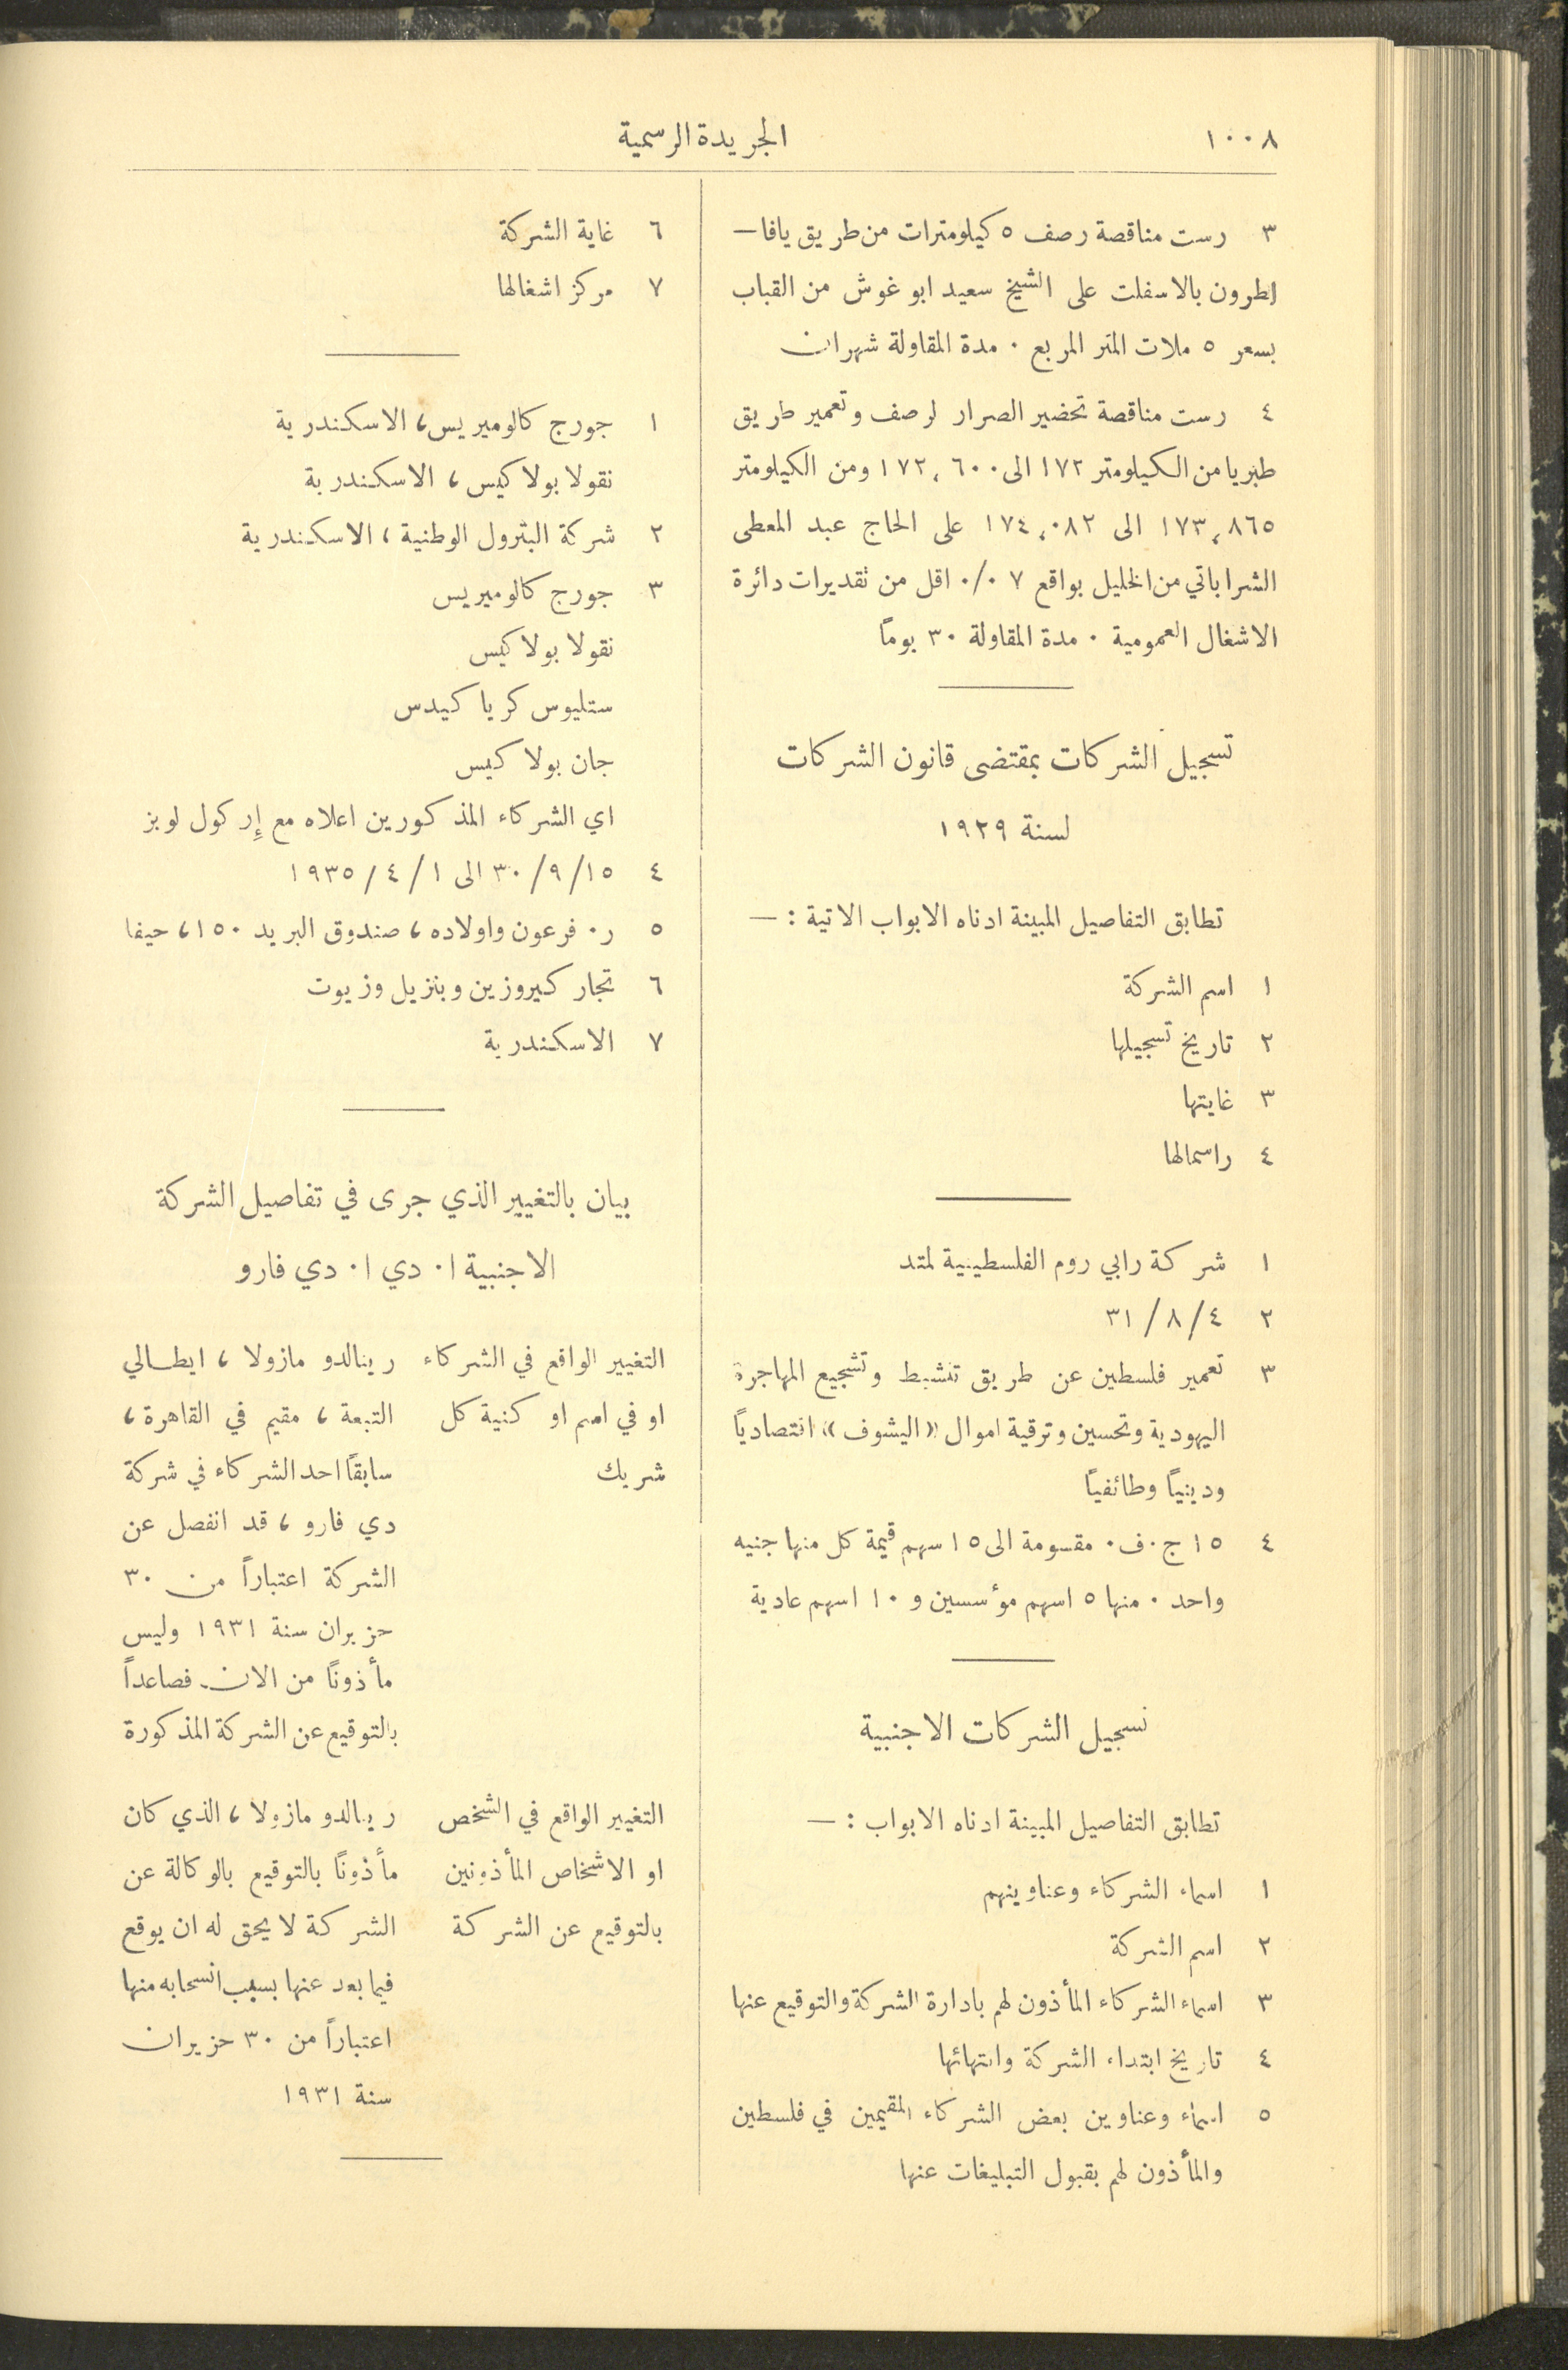 ١٠٠٨
الجريدة الرسمية
٣ رست مناقصة رصف ٥ كيلومترات من طريق يافا —
لطرون بالاسفلت على الشيخ سعيد ابو غوش من القباب
بسعر ٥ ملات المتر المربع ٠ مدة المقاولة شهران
٤ رست مناقصة تحضير الصرار لرصف وتعمير طريق
طبريا من الكيلومتر ١٧٢ الى ١٧٢،٦٠٠ ومن الكيلومتر
١٧٣،٨٦٥ الى ١٧٤،٠٨٢ على الحاج عبد المعطي
الشراباتي من الخليل بواقع ٧ ٠/٠ اقل من تقديرات دائرة
الاشغال العمومية ٠ مدة المقاولة ٣٠ يوماً
تسجيل الشركات بمقتضى قانون الشركات
لسنة ١٩٢٩
تطابق التفاصيل المبينة ادناه الابواب الاتية : —
١ اسم الشركة
٢ تاريخ تسجيلها
٣ غايتها
٤ راسمالها
١ شركة رابي روم الفلسطينية لمتد
٢ ٣١/٨/٤
٣ تعمير فلسطين عن طريق تنشيط وتشجيع المهاجرة
اليهودية وتحسين وترقية اموال «اليشوف» اقتصادياً
ودينياً وطائفياً
٤ ١٥ ج.ف. مقسومة الى ١٥ سهم قيمة كل منها جنيه
واحد ٠ منها ٥ اسهم مؤسسين و ١٠ اسهم عادية
تسجيل الشركات الاجنبية
تطابق التفاصيل المبينة ادناه الابواب : —
١ اسماء الشركاء وعناوينهم
٢ اسم الشركة
٣ اسماء الشركاء المأذون لهم بادارة الشركة والتوقيع عنها
٤ تاريخ ابتداء الشركة وانتهائها
٥ اسماء وعناوين بعض الشركاء المقيمين في فلسطين
والمأذون لهم بقبول التبليغات عنها
٦ غاية الشركة
٧ مركز اشغالها
١ جورج كالوميريس، الاسكندرية
نقولا بولاكيس، الاسكندرية
٢ شركة البترول الوطنية، الاسكندرية
٣ جورج كالوميريس
نقولا بولاكيس
ستليوس كرياكيدس
جان بولاكيس
اي الشركاء المذكورين اعلاه مع إركول لويز
٤ ٣٠/٩/١٥ الى ١٩٣٥/٤/١
٥ ر. فرعون واولاده، صندوق البريد ١٥٠، حيفا
٦ تجار كيروزين وبنزيل وزيوت
٧ الاسكندرية
بيان بالتغيير الذي جرى في تفاصيل الشركة
الاجنبية ا. دي ا. دي فارو
التغيير الواقع في الشركاء
او في اسم او كنية كل
شريك
رينالدو مازولا، ايطالي
التبعة، مقيم في القاهرة،
سابقاً احد الشركاء في شركة
دي فارو، قد انفصل عن
الشركة اعتباراً من ٣٠
حزيران سنة ١٩٣١ وليس
مأذوناً من الان فصاعداً
بالتوقيع عن الشركة المذكورة
التغيير الواقع في الشخص
او الاشخاص المأذونين
بالتوقيع عن الشركة
رينالدو مازولا، الذي كان
مأذوناً بالتوقيع بالوكالة عن
الشركة لا يحق له ان يوقع
فيما بعد عنها بسبب انسحابه منها
اعتباراً من ٣٠ حزيران
سنة ١٩٣١